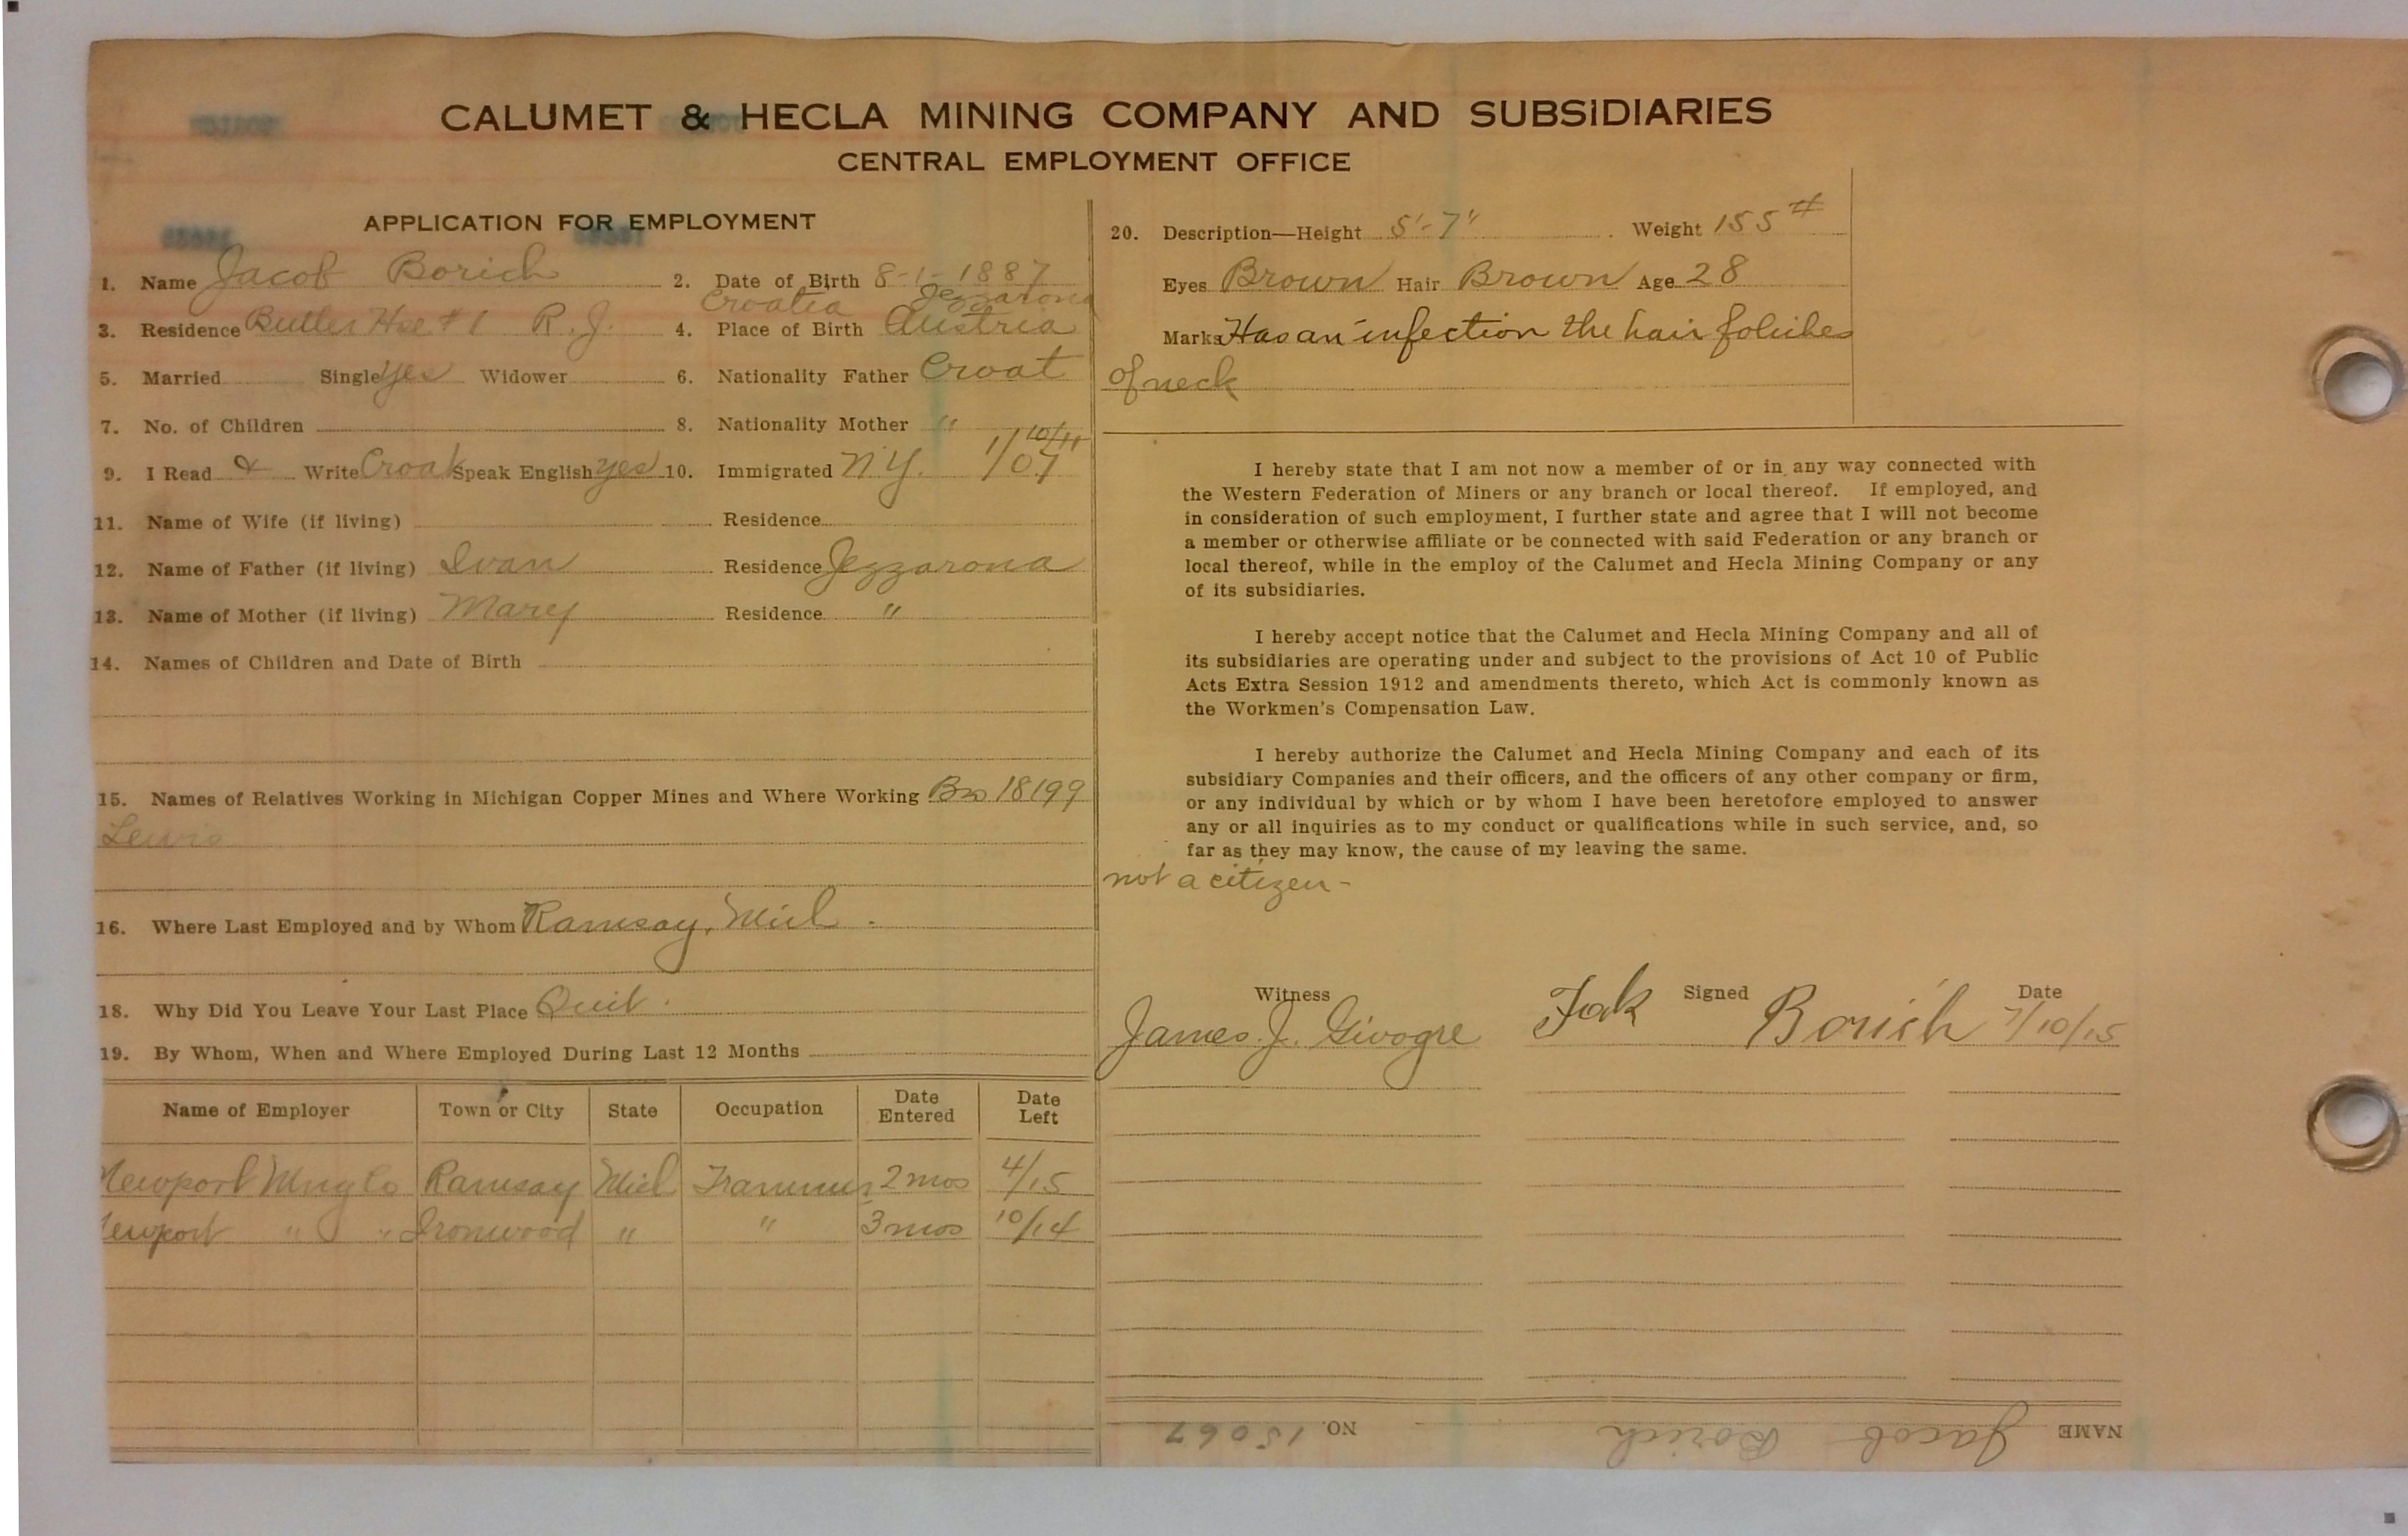 CALUMET & HECLA MINING COMPANY AND SUBSIDIARIES
CENTRAL EMPLOYMENT OFFICE
APPLICATION FOR EMPLOYMENT
1. Name Jacob Borich 2. Date of Birth 8-1-1887
Croatia Jezzarona
3. Residence Butler Hse #1 R. J. 4. Place of Birth Austria
5. Married Single yes Widower 6. Nationality Father Croat
7. No. of Children 8. Nationality Mother "
9. I Read & Write Croat Speak English yes 10. Immigrated N.Y. 1/07 10/11
11. Name of Wife (if living) Residence
12. Name of Father (if living) Ivan Residence Jezzarona
13. Name of Mother (if living) Mary Residence "
14. Names of Children and Date of Birth
15. Names of Relatives Working in Michigan Copper Mines and Where Working Bro 18199
Lewis
16. Where Last Employed and by Whom Ramsay, Mich.
18. Why Did You Leave Your Last Place Quit.
19. By Whom, When and Where Employed During Last 12 Months
Name of Employer Town or City State Occupation Date Entered Date Left
Newport Mng Co Ramsay Mich Trammer 2 mos 4/15
Newport " " Ironwood " " 3 mos 10/14
20. Description—Height 5'-7" Weight 155#
Eyes Brown Hair Brown Age 28
Marks Has an infection the hair folicles
of neck
I hereby state that I am not now a member of or in any way connected with
the Western Federation of Miners or any branch or local thereof. If employed, and
in consideration of such employment, I further state and agree that I will not become
a member or otherwise affiliate or be connected with said Federation or any branch or
local thereof, while in the employ of the Calumet and Hecla Mining Company or any
of its subsidiaries.
I hereby accept notice that the Calumet and Hecla Mining Company and all of
its subsidiaries are operating under and subject to the provisions of Act 10 of Public
Acts Extra Session 1912 and amendments thereto, which Act is commonly known as
the Workmen's Compensation Law.
I hereby authorize the Calumet and Hecla Mining Company and each of its
subsidiary Companies and their officers, and the officers of any other company or firm,
or any individual by which or by whom I have been heretofore employed to answer
any or all inquiries as to my conduct or qualifications while in such service, and, so
far as they may know, the cause of my leaving the same.
not a citizen -
Witness Signed Date
James J. Givogre Jak Borich 7/10/15
NAME Jacob Borich NO. 15067